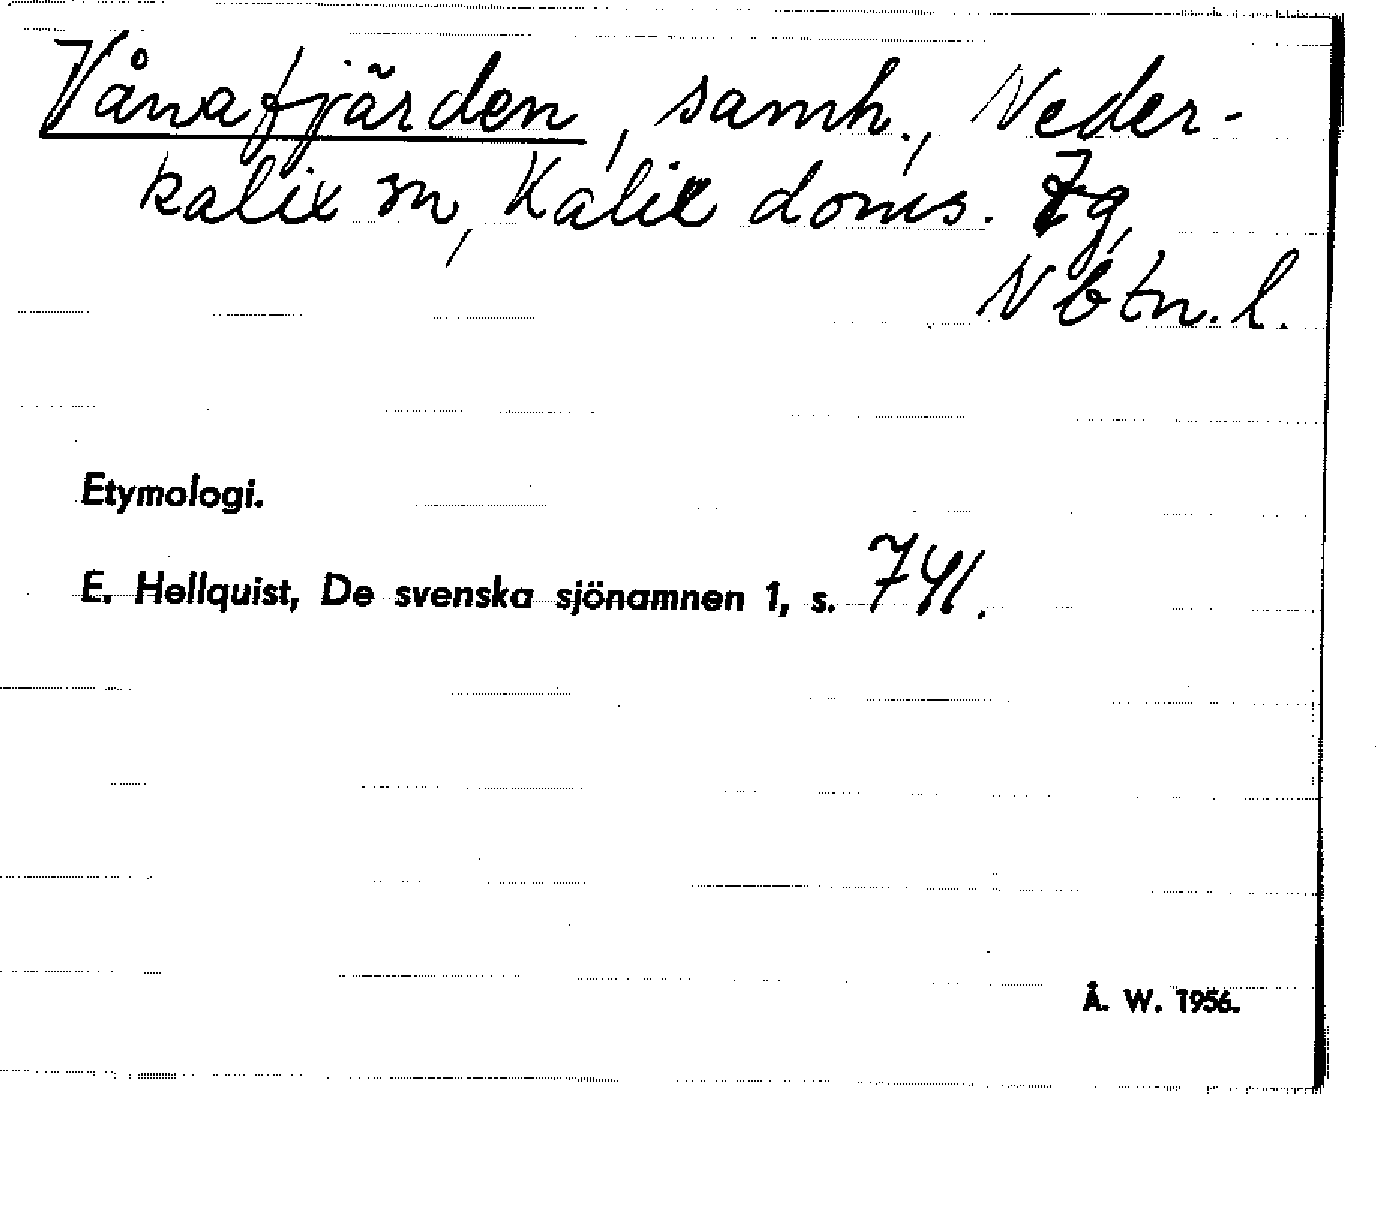 Vånafjärden, samh., Neder-
kalix sn, Kalix doms. Tg,
Nbtn. l.
Etymologi.
E. Hellquist, De svenska sjönamnen 1, s. 741.
Å. W. 1956.